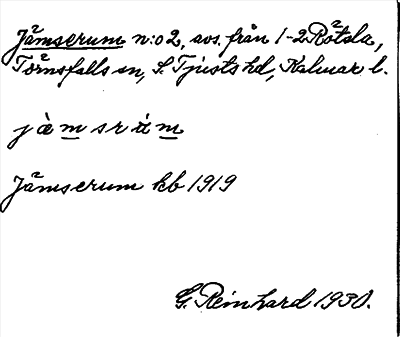 Jämserum n:o 2, avs. från 1-2 Rötsla,
Törnsfalls sn, S. Tjusts hd, Kalmar l.
jàmsrùm
Jämserum kb 1919
G. Reinhard 1930.